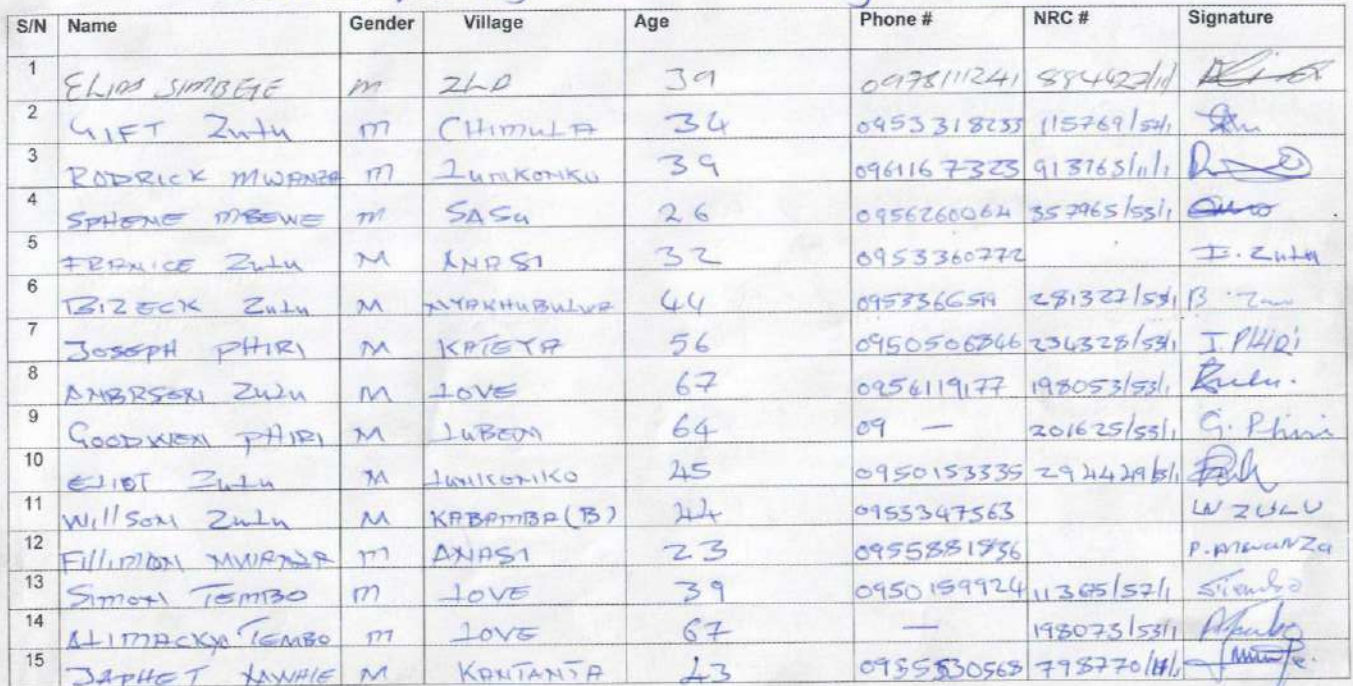 S/N Name Gender Village Age Phone # NRC # Signature
1 ELIAS SIMBEYE m ZLD 39 0978111241 884427/11/
2 GIFT Zulu m CHIMULA 34 0953318233 115769/54/1
3 RODRICK MWANZA m Lunkonko 39 0961167323 913765/11/1
4 SPHENE MBEWE m SASu 26 0956260064 357965/53/1
5 FRANICE Zulu M ANASI 32 0953360772 I. Zulu
6 BIZECK Zulu M NYAKHUBULWA 44 095336659 281327/53/1 B. Zulu
7 JOSEPH PHIRI M KATEYA 56 0950506846 234328/53/1 J. PHIRI
8 Zulu M LOVE 67 0956119177 198053/53/1 Zulu.
9 GOODWEN PHIRI M LUBEM 64 09 — 201625/53/1 G. Phiri
10 ELIOT Zulu M LUNKONKO 45 0950153335 294429/51/1
11 WillSON Zulu M KABAMBA (B) 44 0953347563 W ZULU
12 FILLIPION MWANZA m ANASI 23 0955881836 P. MWANZA
13 SIMON TEMBO m LOVE 39 0950159924 11365/57/1 STembo
14 ALIMACKYO TEMBO m LOVE 67 — 198073/53/1 ATembo
15 JAPHET M KANTANTA 43 0955530568 798770/11/1